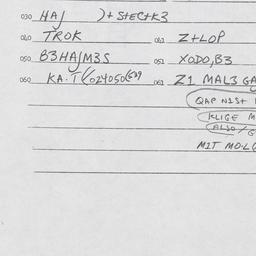 030 HAJ )+STEC+K3
040 TROK 041 Z+LOP
050 B3HAJM3S 051 XODO,B3
060 KA.T 061 Z1 MAL3 GA
QAP NIST
KLIGE M
ALSO/G
MIT MO.L